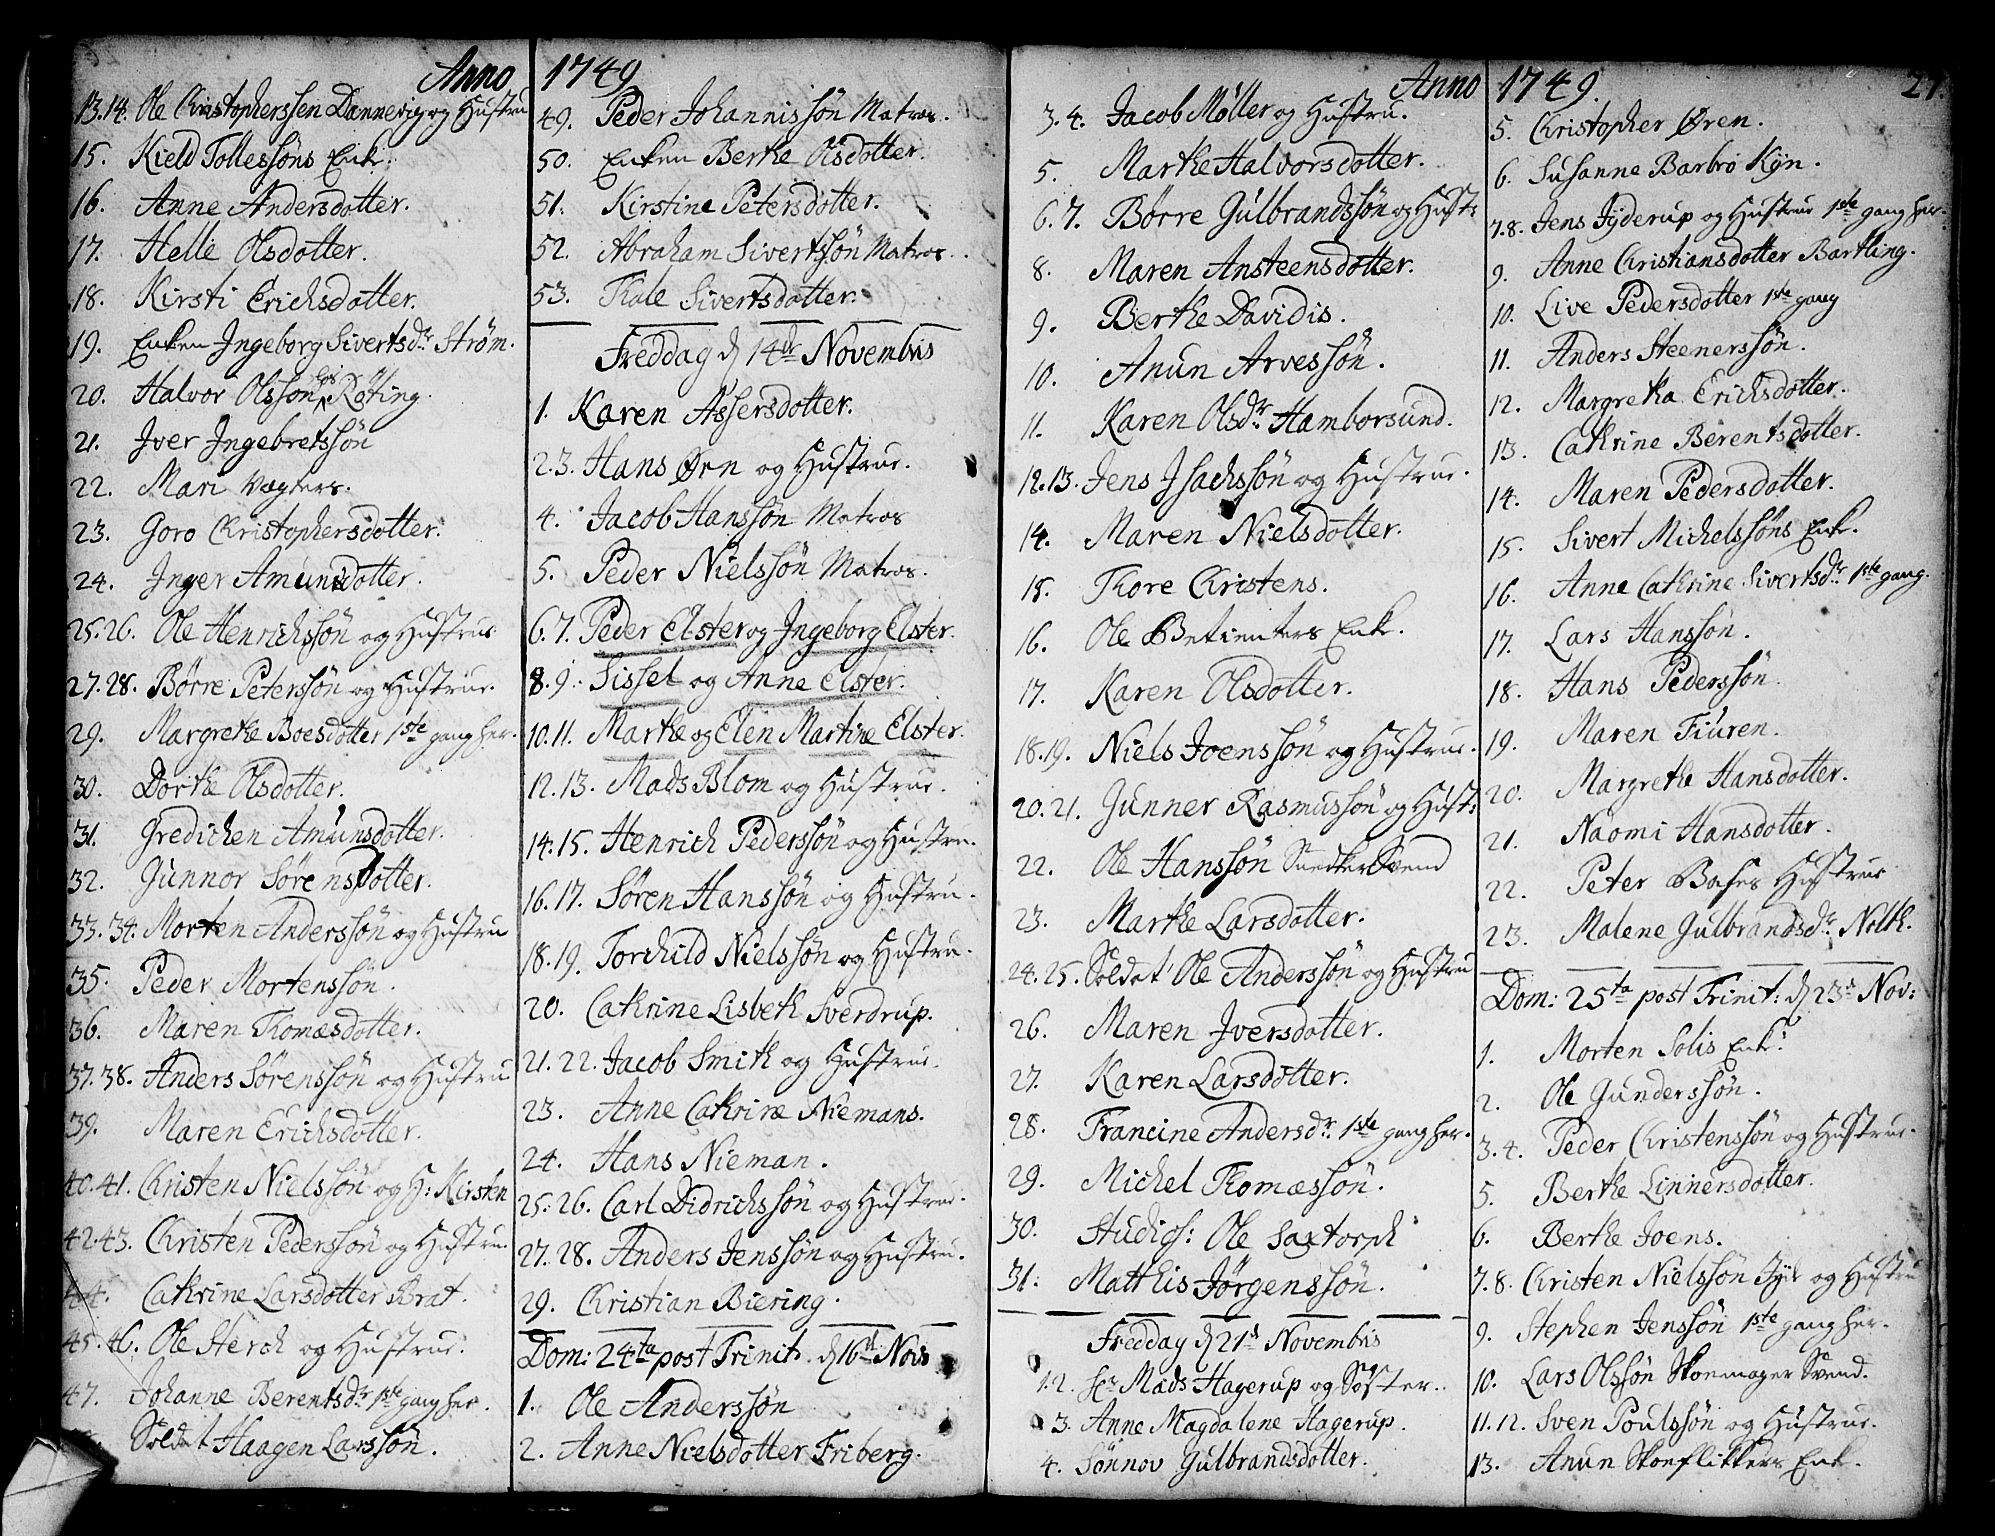 Anno 1749
13.14. Ole Christopherssen Dannevig og Hustru
15. Kield Tollessøns Enk:
16. Anne Andersdotter.
17. Helle Olsdotter.
18. Kirsti Erichsdotter.
19. Enken Ingeborg Sivertsdr Strøm.
20. Halvor Olssøn hos Røting.
21. Iver Ingebretssøn
22. Mari Vægters.
23. Goro Christophersdotter.
24. Inger Amundsdotter.
25.26. Ole Henrichssøn og Hustrue
27.28. Børre Peterssøn og Hustrue.
29. Margrethe Boesdotter 1ste gang her.
30. Dorthe Olsdotter.
31. Gredichen Amunsdotter.
32. Gunnor Sørensdotter.
33.34. Morten Anderssøn og Hustru
35. Peder Mortenssøn.
36. Maren Thomæsdotter.
37.38. Anders Sørenssøn og Hustru
39. Maren Erichsdotter.
40.41. Christen Nielssøn og H: Kirsten
42.43. Christen Pederssøn og Hustru.
44. Cathrine Larsdotter Brat.
45.46. Ole Herch og Hustrue.
47. Johanne Berentsdr 1ste gang her.
Soldat Haagen Larssøn.
49. Peder Johannissøn Matros.
50. Enken Berthe Olsdotter.
51. Kirstine Petersdotter.
52. Abraham Sivertssøn Matros.
53. Thale Sivertsdotter.
Freddag d 14de Novembris
1. Karen Assersdotter.
2.3. Hans Ørn og Hustrue.
4. Jacob Hanssøn Matros
5. Peder Nielssøn Matros.
6.7. Peder Elster og Ingeborg Elster.
8.9. Sissel og Anne Elster.
10.11. Marthe og Elen Martine Elster.
12.13. Mads Blom og Hustrue.
14.15. Henrich Pederssøn og Hustru.
16.17. Søren Hanssøn og Hustru.
18.19. Torchild Nielssøn og Hustru.
20. Cathrine Lisbeth Sverdrup.
21.22. Jacob Smith og Hustrue.
23. Anne Cathrine Niemans.
24. Hans Nieman.
25.26. Carl Didrichssøn og Hustrue.
27.28. Anders Jenssøn og Hustru.
29. Christian Biering.
Dom: 24ta post Trinit. d 16d Novs
1. Ole Anderssøn
2. Anne Nielsdotter Friberg.
Anno 1749. 27.
3.4. Jacob Møller og Hustru.
5. Marthe Halvorsdotter.
6.7. Børre Gulbrandssøn og Hust:
8. Maren Ansteensdotter.
9. Berthe Davidis.
10. Anun Arvessøn.
11. Karen Olsdr Hamborsund.
12.13. Jens Isachssøn og Hustrue.
14. Maren Nielsdotter.
15. Thore Christens.
16. Ole Betienters Enke.
17. Karen Olsdotter.
18.19. Niels Joenssøn og Hustrue.
20.21. Gunner Rasmussøn og Hust:
22. Ole Hanssøn Snedker Svend
23. Marthe Larsdotter.
24.25. Soldat Ole Anderssøn og Hustru
26. Maren Iversdotter.
27. Karen Larsdotter.
28. Francine Andersdr. 1ste gang her.
29. Michel Thomæssøn.
30. Studios: Ole Saxtorph
31. Matthis Jørgenssøn.
Fredday d 21d Novembris
1.2. Sr Mads Hagerup og Søster.
3. Anne Magdalene Hagerup.
4. Sønnov Gulbrandsdotter.
5. Christopher Øren.
6. Susanne Barbro Kyn.
7.8. Jens Jyderup og Hustrue 1ste gang her.
9. Anne Christiansdotter Bartling.
10. Live Pedersdotter 1ste gang
11. Anders Steenerssøn.
12. Margretha Erichsdotter.
13. Cathrine Berentsdotter.
14. Maren Pedersdotter.
15. Sivert Michelssøns Enk.
16. Anne Cathrine Sivertsdr 1ste gang.
17. Lars Hanssøn.
18. Hans Pederssøn.
19. Maren Fiuren.
20. Margrethe Hansdotter.
21. Naomi Hansdotter.
22. Peter Boses Hustrue
23. Malene Gulbrandsdr. Nilth.
Dom: 25ta post Trinit: d 23d Nov:
1. Morten Solis Enk:
2. Ole Gunderssøn.
3.4. Peder Christenssøn og Hustrue.
5. Berthe Linnersdotter.
6. Berthe Joens.
7.8. Christen Nielssøn Jyde og Hustru
9. Stephen Jenssøn 1ste gang her.
10. Lars Olssøn Skoemager Svend.
11.12. Sven Poulssøn og Hustrue.
13. Anun Skoeflikkers Enk.